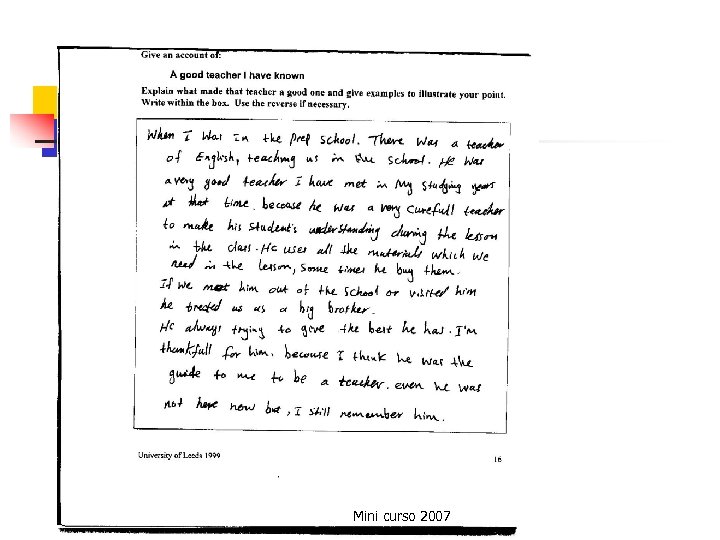 Give an account of:
A good teacher I have known
Explain what made that teacher a good one and give examples to illustrate your point.
Write within the box. Use the reverse if necessary.
When I was in the prep school. There was a teacher
of English, teaching us in the school. He was
a very good teacher I have met in my studying years
at that time. becaose he was a very curefull teacher
to make his student's understanding during the lesson
in the class. He uses all the materials which we
need in the lesson, some times he buy them.
If we meet him out of the school or visited him
he treated us as a big brother.
He always trying to give the best he has. I'm
thankfull for him. becouse I think he was the
guide to me to be a teacher. even he was
not here now but, I still remember him.
University of Leeds 1999
16
Mini curso 2007